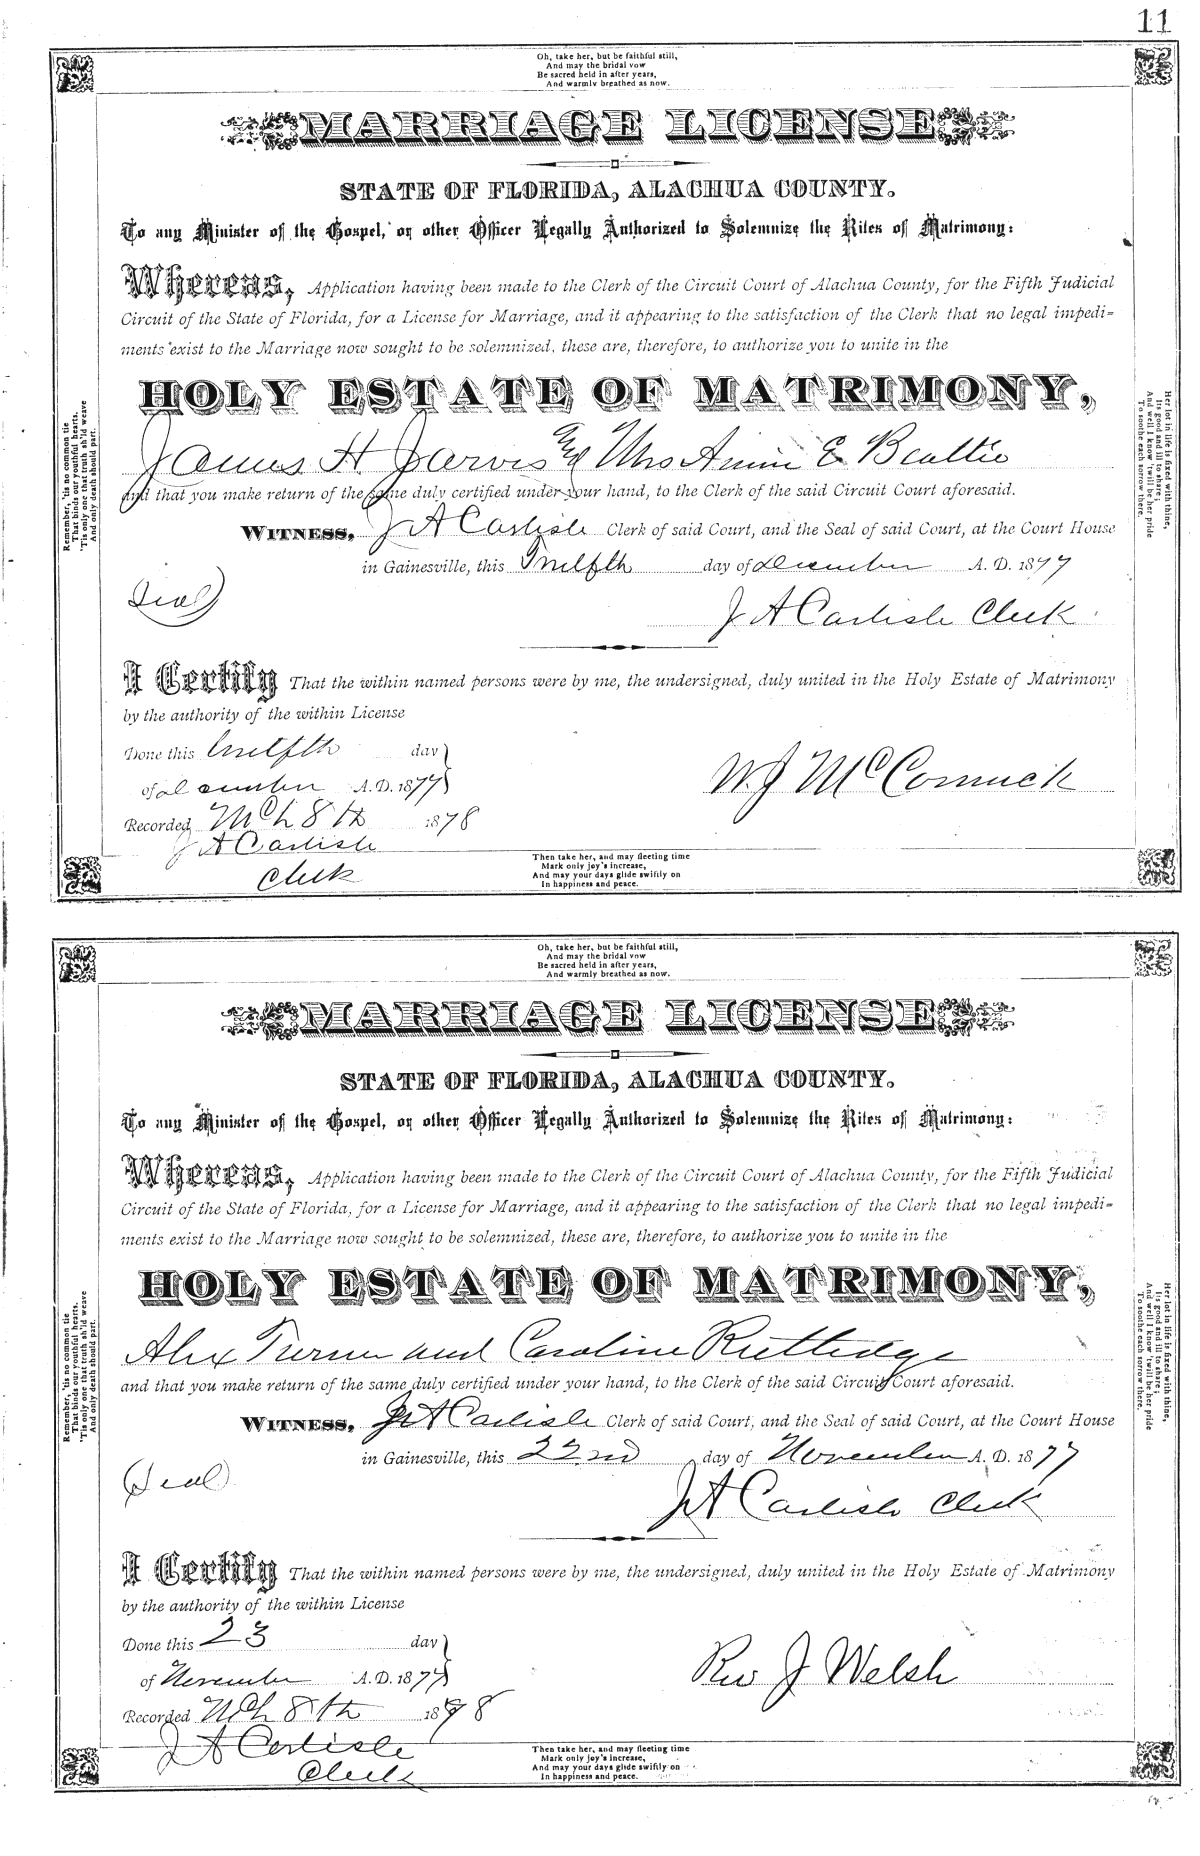 11
Oh, take her, but be faithful still,
And may the bridal vow
Be sacred held in after years,
And warmly breathed as now.
MARRIAGE LICENSE
STATE OF FLORIDA, ALACHUA COUNTY.
To any Minister of the Gospel, or other Officer Legally Authorized to Solemnize the Rites of Matrimony:
Whereas, Application having been made to the Clerk of the Circuit Court of Alachua County, for the Fifth Judicial
Circuit of the State of Florida, for a License for Marriage, and it appearing to the satisfaction of the Clerk that no legal impedi=
ments exist to the Marriage now sought to be solemnized, these are, therefore, to authorize you to unite in the
HOLY ESTATE OF MATRIMONY,
James H. Jarvis Esq Mrs Annie E Beattie
and that you make return of the same duly certified under your hand, to the Clerk of the said Circuit Court aforesaid.
WITNESS, J A Carlisle Clerk of said Court, and the Seal of said Court, at the Court House
in Gainesville, this Twelfth day of December A. D. 1877
(Seal)
J A Carlisle Clerk
I Certify That the within named persons were by me, the undersigned, duly united in the Holy Estate of Matrimony
by the authority of the within License
Done this twelfth day
of December A. D. 1877
W. J McCormick
Recorded Mch 8th 1878
J A Carlisle
Clerk
Then take her, and may fleeting time
Mark only joy's increase,
And may your days glide swiftly on
In happiness and peace.
Remember, 'tis no common tie
That binds our youthful hearts,
'Tis only one that truth sh'ld weave
And only death should part.
Her lot in life is fixed with thine,
Its good and ill to share;
And well I know 'twill be her pride
To soothe each sorrow there.
Oh, take her, but be faithful still,
And may the bridal vow
Be sacred held in after years,
And warmly breathed as now.
MARRIAGE LICENSE
STATE OF FLORIDA, ALACHUA COUNTY.
To any Minister of the Gospel, or other Officer Legally Authorized to Solemnize the Rites of Matrimony:
Whereas, Application having been made to the Clerk of the Circuit Court of Alachua County, for the Fifth Judicial
Circuit of the State of Florida, for a License for Marriage, and it appearing to the satisfaction of the Clerk that no legal impedi=
ments exist to the Marriage now sought to be solemnized, these are, therefore, to authorize you to unite in the
HOLY ESTATE OF MATRIMONY,
Alex Turner and Caroline Ruttledge
and that you make return of the same duly certified under your hand, to the Clerk of the said Circuit Court aforesaid.
WITNESS, J A Carlisle Clerk of said Court, and the Seal of said Court, at the Court House
in Gainesville, this 22nd day of November A. D. 1877
(Seal)
J A Carlisle Clerk
I Certify That the within named persons were by me, the undersigned, duly united in the Holy Estate of Matrimony
by the authority of the within License
Done this 23 day
of November A. D. 1877
Rev J Welsh
Recorded Mch 8th 1878
J A Carlisle
Clerk
Then take her, and may fleeting time
Mark only joy's increase,
And may your days glide swiftly on
In happiness and peace.
Remember, 'tis no common tie
That binds our youthful hearts,
'Tis only one that truth sh'ld weave
And only death should part.
Her lot in life is fixed with thine,
Its good and ill to share;
And well I know 'twill be her pride
To soothe each sorrow there.